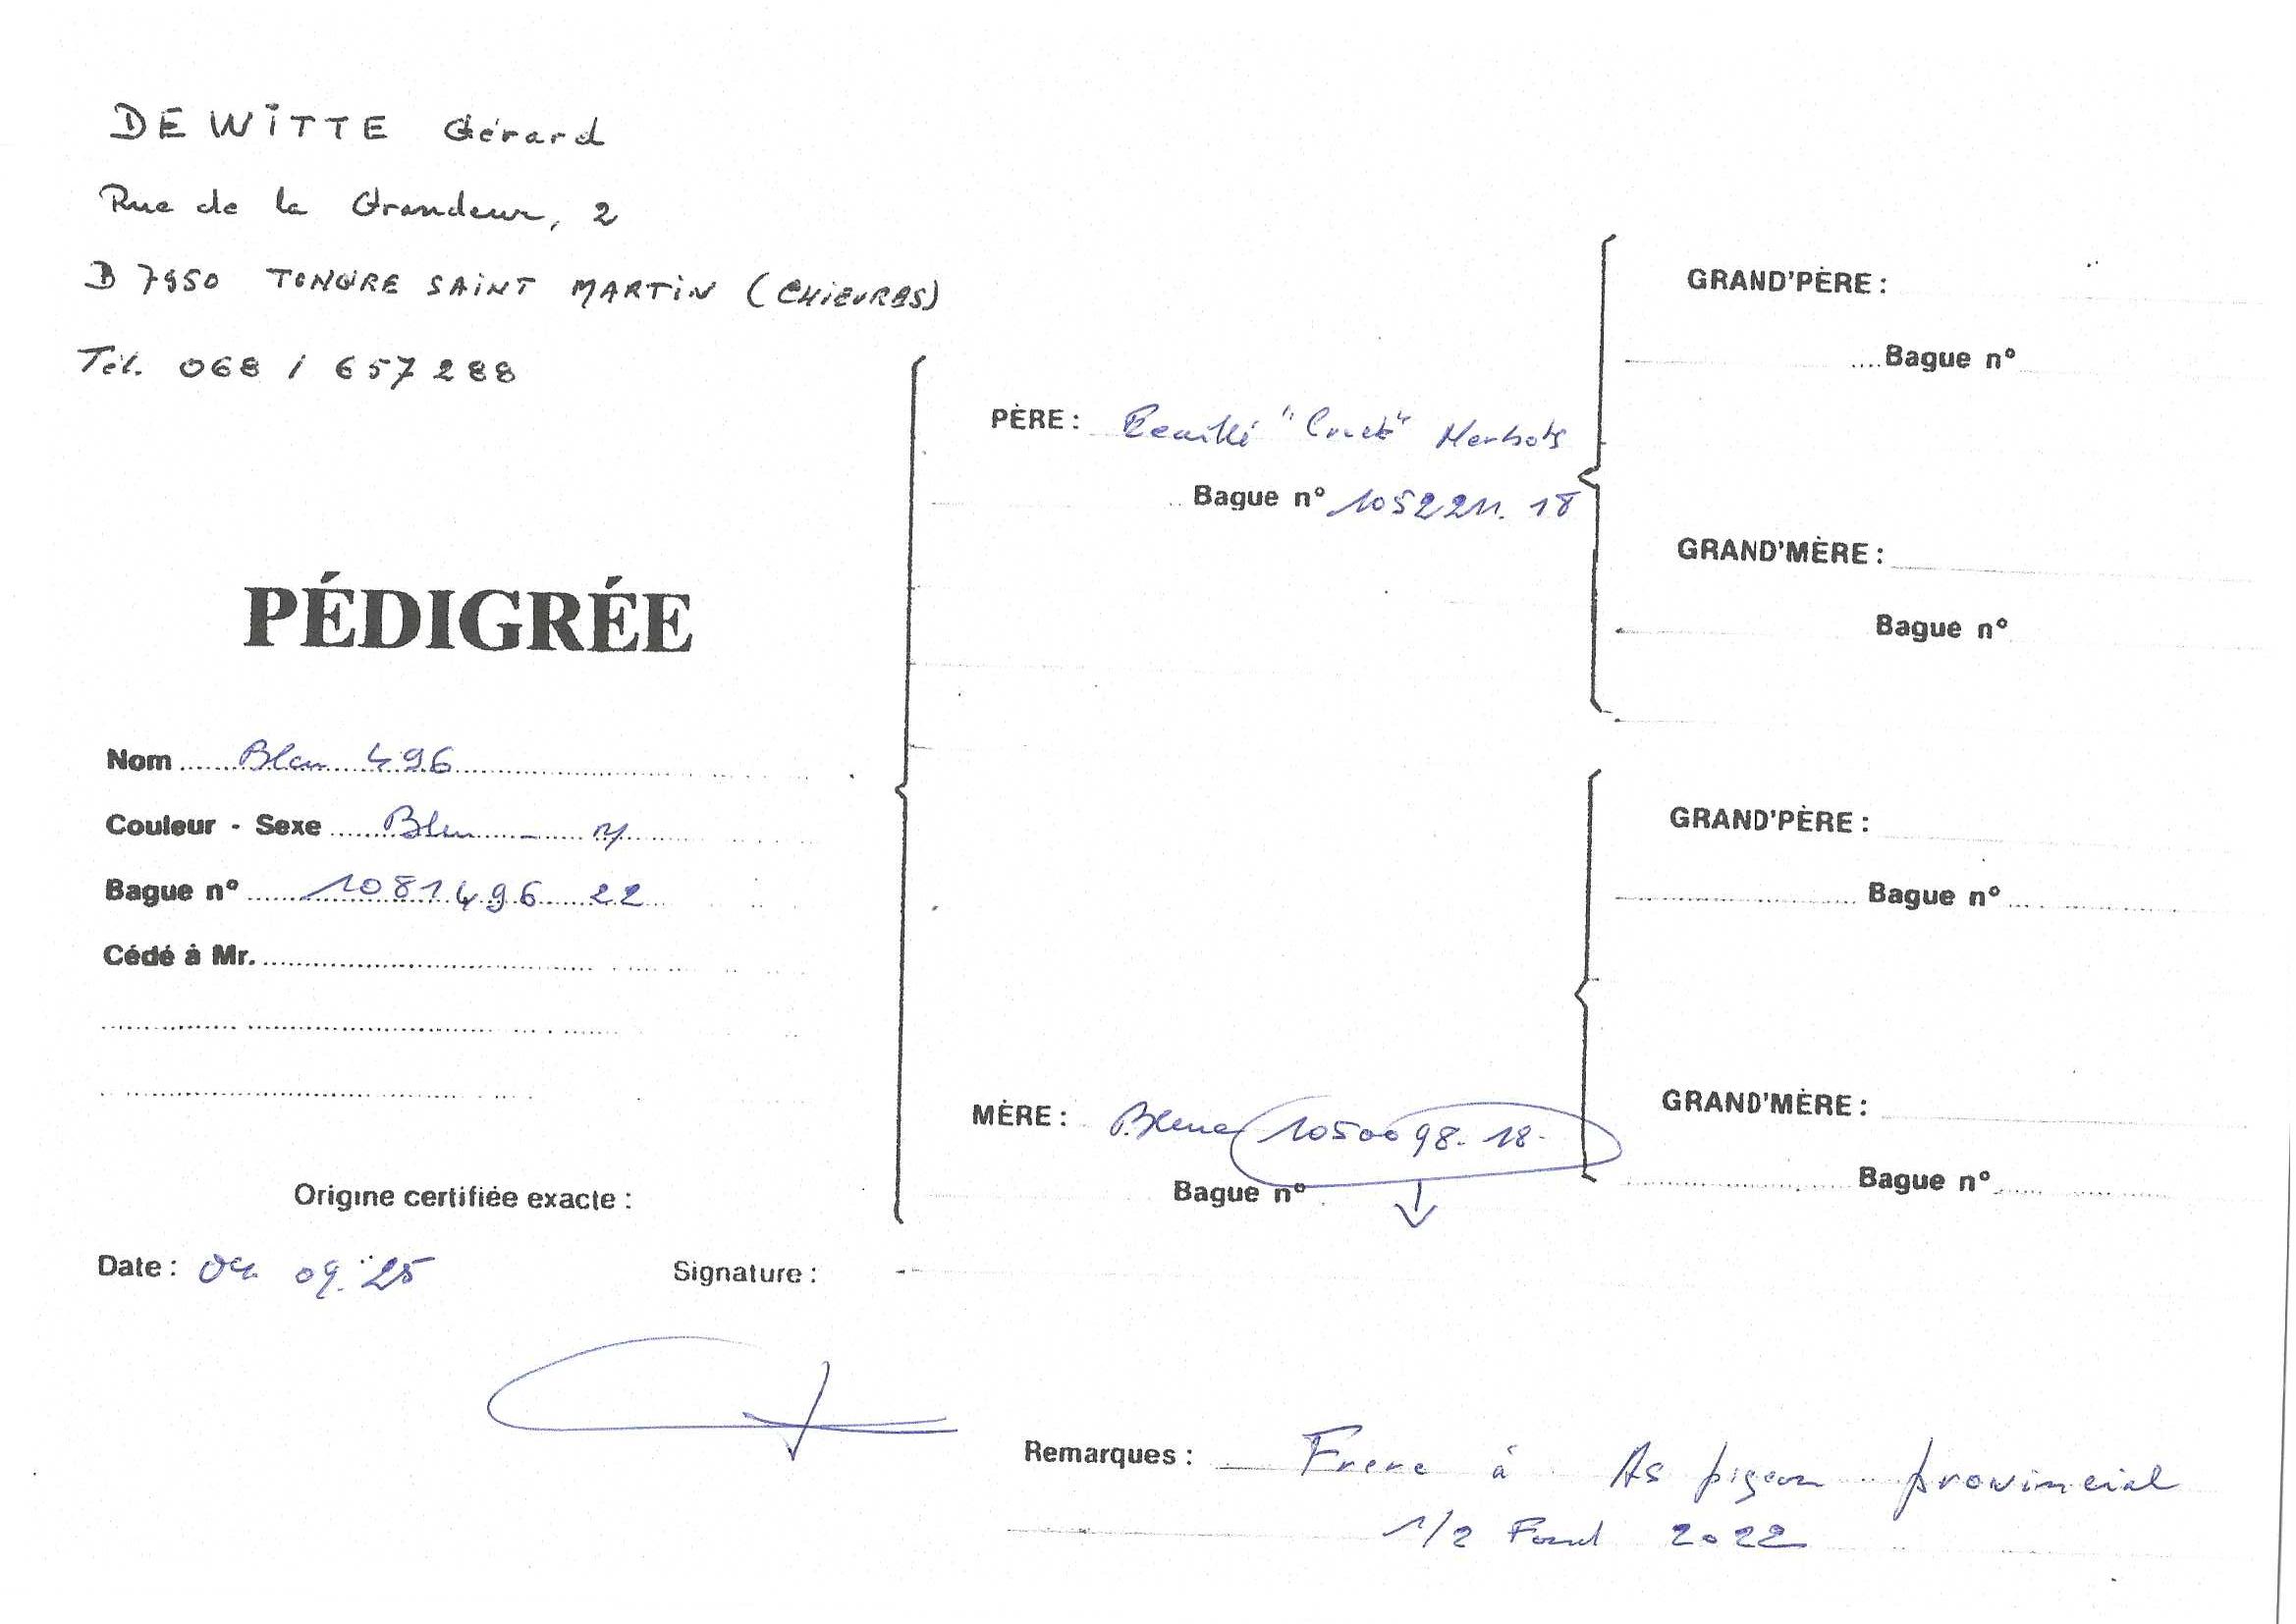 DE WITTE Gérard
Rue de la Grandeur, 2
B 7950 TONGRE SAINT MARTIN (CHIEVRES)
Tél. 068 / 657288
PÉDIGRÉE
Nom Bleu 496
Couleur - Sexe Bleu - M
Bague n° 1081496 22
Cédé à Mr.
Origine certifiée exacte :
Date : 09.25
Signature :
PÈRE : Ecaillé
Bague n° 1052211. 18
MÈRE : Bleue 1050098. 18.
Bague n°
GRAND'PÈRE :
Bague n°
GRAND'MÈRE :
Bague n°
GRAND'PÈRE :
Bague n°
GRAND'MÈRE :
Bague n°
Remarques : Frere à As pigeon provincial
1/2 Fond 2022